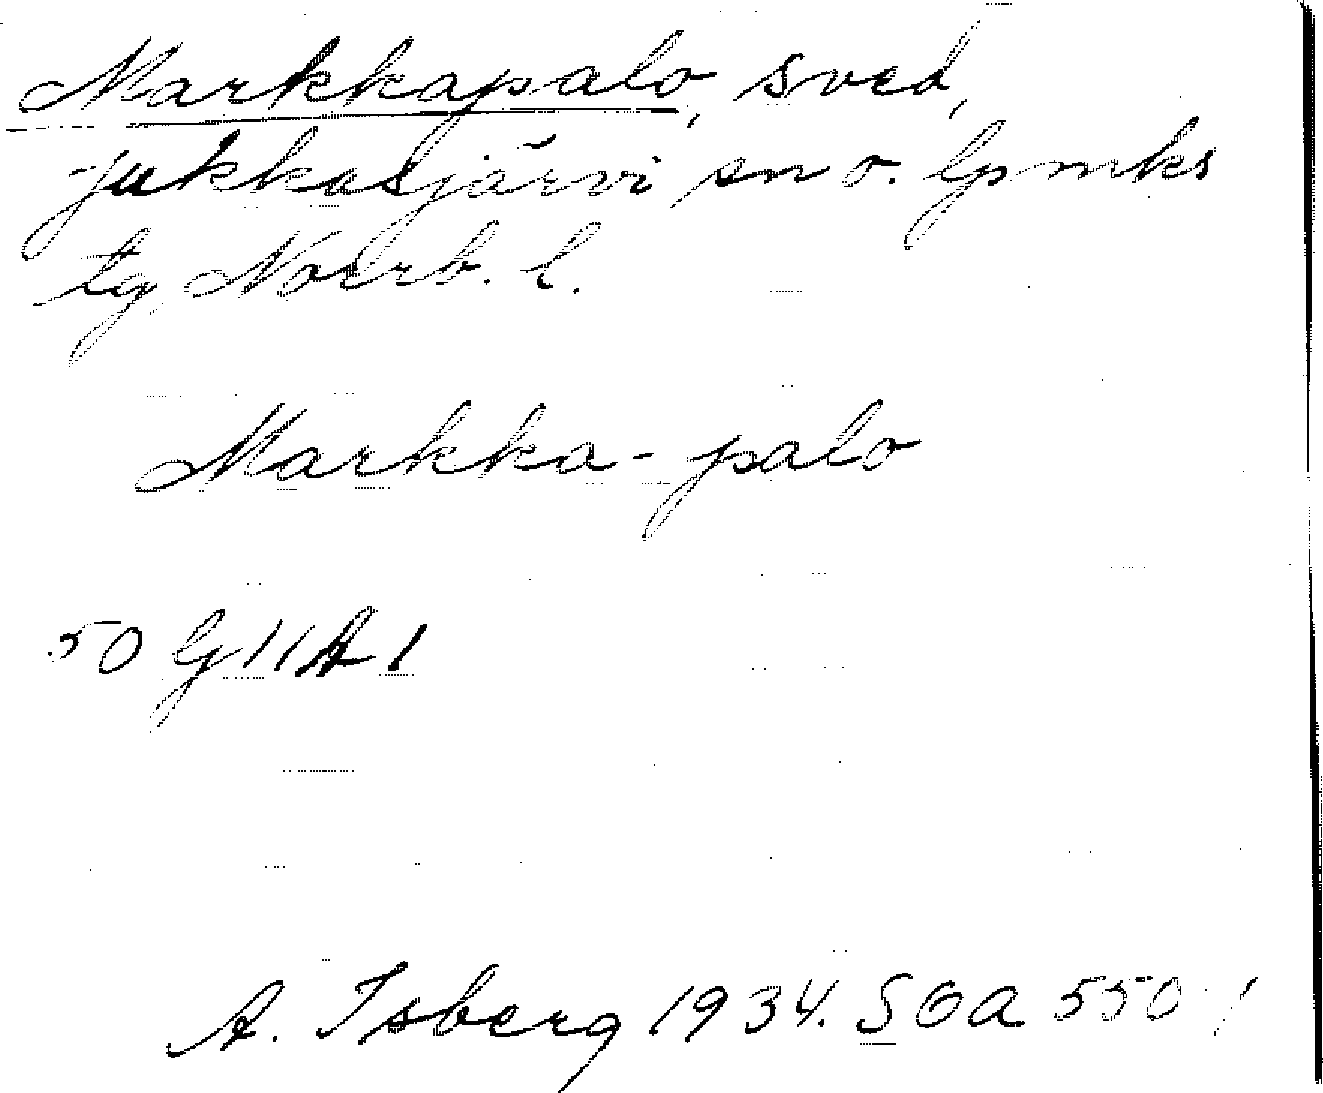 Markkapalo, sved,
Jukkasjärvi sn o. lpmks
tg, Norrb. l.
Markka-palo
50 G 11 A 1
A. Isberg 1934. SOA 550:1